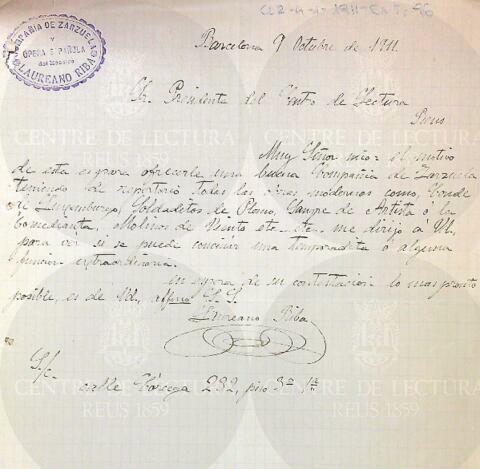 CLR-4-1-1911-Ex.5-96
COMPAÑIA DE ZARZUELA
Y
OPERA ESPAÑOLA
LAUREANO RIBA
Barcelona 9 Octubre de 1911.
Sr. Presidente del Centro de Lectura
Reus
Muy Señor mio: el motivo
de esta es para ofrecerle una buena Compañia de Zarzuela
teniendo de repertorio todas las obras modernas como, Conde
de Luxemburgo, Soldaditos de Plomo, Sangre de Artista ó la
Comedianta, Molinos de Viento etc. etc. me dirijo á Vd.
para ver si se puede concluir una temporadita ó alguna
función extraordinaria.
en espera de su contestacion lo mas pronto
posible, es de Vd. affmo S. S.
Laureano Riba
S/c. calle Córcega 232, piso 3º 1ª
CENTRE DE LECTURA
REUS 1859
CENTRE DE LECTURA
REUS 1859
CENTRE DE LECTURA
REUS 1859